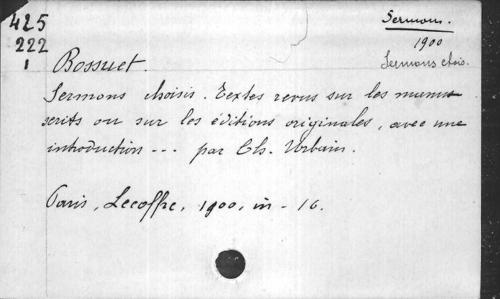 425
222
1
Sermons.
1900
Sermons chois.
Bossuet.
Sermons choisis. Textes revus sur les manus-
crits ou sur les éditions originales, avec une
introduction ... par Ch. Urbain.
Paris, Lecoffre, 1900, in-16.